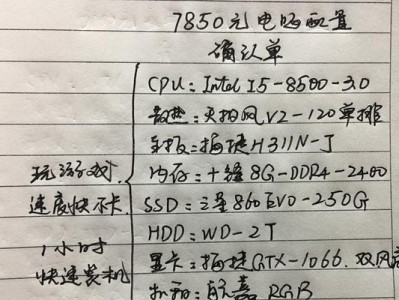 7850元电脑配置
确认单
CPU：Intel I5-8500-3.0
散热：天拍风V2-120单排
主板：捷H311N-J
玩游戏
内存：十8G-DDR4-2400
速度快不卡
SSD：三860EVO-250G
HDD：WD-2T
1小时
快速装机
显卡：捷GTX-1066.双风
RGB